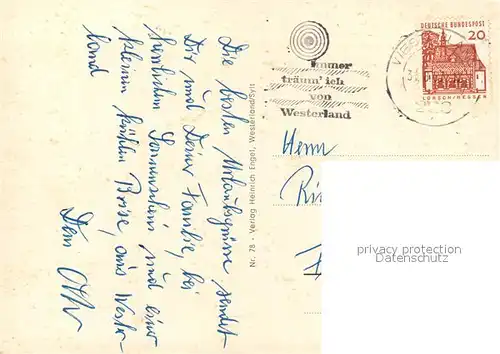 Die besten Urlaubsgrüsse sendet
Dir und Deiner Familie, bei
herrlichem Sonnenschein und einer
kleinen kühlen Brise, aus Wester-
land
Dein
Nr. 78 • Verlag Heinrich Engel, Westerland/Sylt
Immer
träum' ich
von
Westerland
DEUTSCHE BUNDESPOST
20
LORSCH/HESSEN
Herrn
privacy protection
Datenschutz